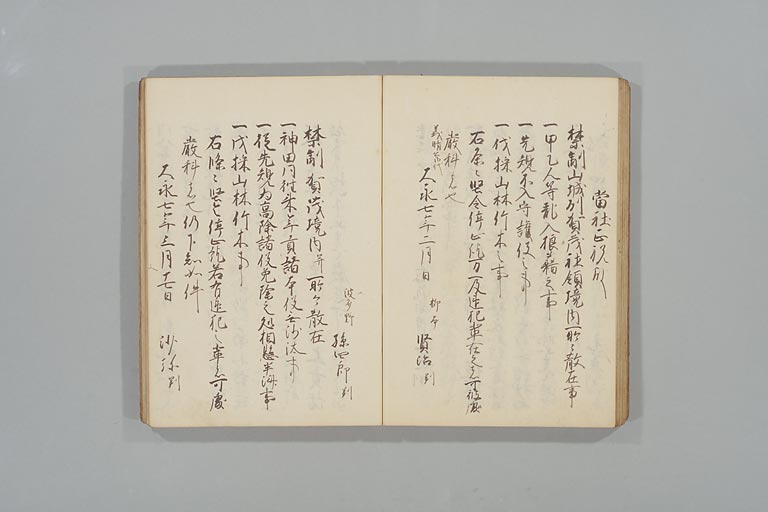 當社正祝所
禁制山城列賀茂社領境内所々散在事
一甲乙人等乱入狼藉之事
一先規不入守護使之事
一伐採山林竹木之事
右条々堅令停止訖万一及違犯輩在之者可被處
嚴科者也
義晴
大永七年二月日 柳本 賢治判
波多野 孫四郎判
禁制賀茂境内并所々散在
一神田同往来年貢諸本役無沙汰事
一従先規為高除諸役免除之処相懸半済事
一伐採山林竹木事
右條々堅令停止訖若有違犯之輩者可處
嚴科者也仍下知如件
大永七年三月 日 沙弥判